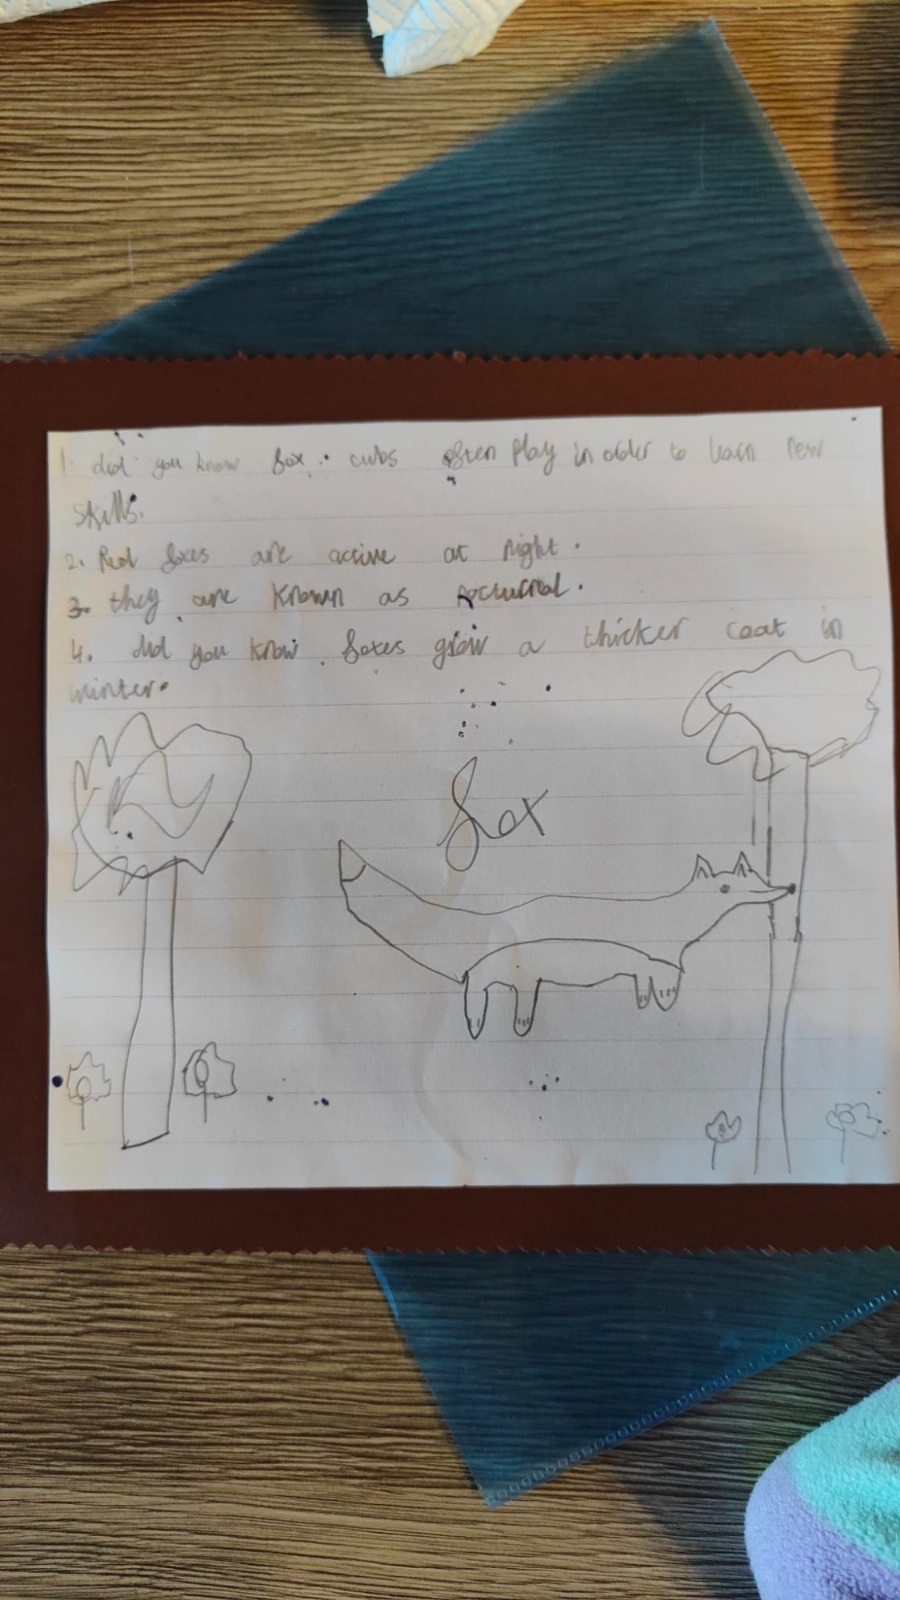 1. did you know fox cubs often play in order to learn new
skills.
2. Red foxes are active at night.
3. they are known as nocturnal.
4. did you know. foxes grow a thicker coat in
winter.
fox